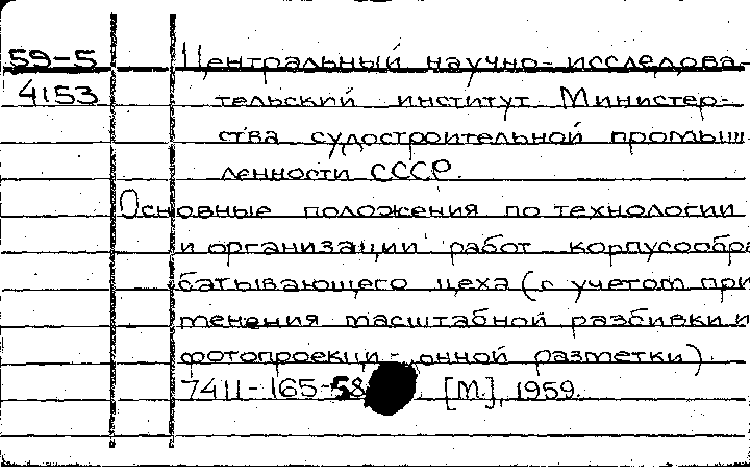 59-5 Центральный научно-исследова-
4153 тельский институт Министер-
ства судостроительной промыш
ленности СССР.
Основные положения по технологии
и организации работ корпусообра
батывающего цеха (с учетом при
менения масштабной разбивки и
фотопроекци-онной разметки).
7411-165-58 [М.], 1959.